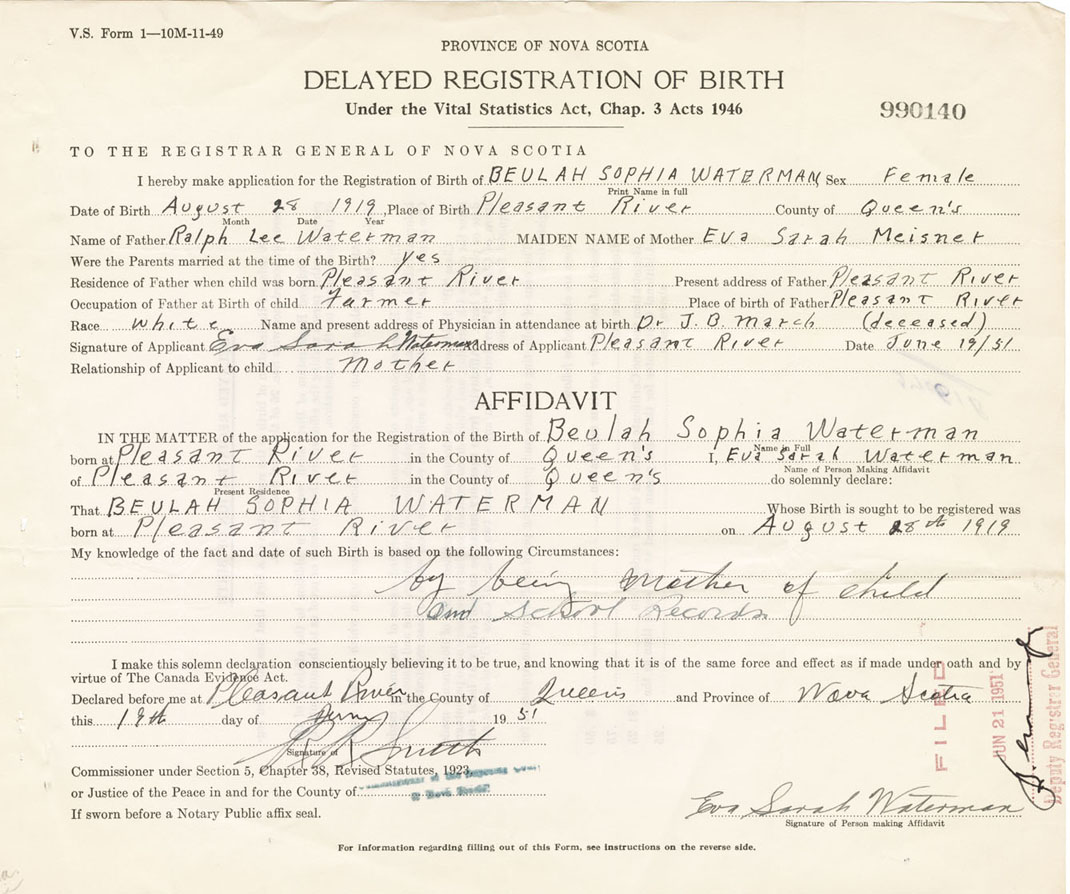 V.S. Form 1—10M-11-49
PROVINCE OF NOVA SCOTIA
DELAYED REGISTRATION OF BIRTH
Under the Vital Statistics Act, Chap. 3 Acts 1946
990140
TO THE REGISTRAR GENERAL OF NOVA SCOTIA
I hereby make application for the Registration of Birth of BEULAH SOPHIA WATERMAN Sex Female
Print Name in full
Date of Birth August 28 1919, Place of Birth Pleasant River County of Queen's
Month Date Year
Name of Father Ralph Lee Waterman MAIDEN NAME of Mother Eva Sarah Meisner
Were the Parents married at the time of the Birth? yes
Residence of Father when child was born Pleasant River Present address of Father Pleasant River
Occupation of Father at Birth of child Farmer Place of birth of Father Pleasant River
Race white Name and present address of Physician in attendance at birth Dr J.B. March (deceased)
Signature of Applicant Eva Sarah Waterman Address of Applicant Pleasant River Date June 19/51
Relationship of Applicant to child Mother
AFFIDAVIT
IN THE MATTER of the application for the Registration of the Birth of Beulah Sophia Waterman
Name in Full
born at Pleasant River in the County of Queen's I, Eva Sarah Waterman
Name of Person Making Affidavit
of Pleasant River in the County of Queen's do solemnly declare:
Present Residence
That BEULAH SOPHIA WATERMAN Whose Birth is sought to be registered was
born at Pleasant River on August 28th 1919
My knowledge of the fact and date of such Birth is based on the following Circumstances:
by being Mother of child
and School Records
I make this solemn declaration conscientiously believing it to be true, and knowing that it is of the same force and effect as if made under oath and by
virtue of The Canada Evidence Act.
Declared before me at Pleasant River in the County of Queens and Province of Nova Scotia
this 19th day of June 1951
R R Smith
Signature of
Commissioner under Section 5, Chapter 38, Revised Statutes, 1923,
or Justice of the Peace in and for the County of
If sworn before a Notary Public affix seal.
Eva Sarah Waterman
Signature of Person making Affidavit
For information regarding filling out of this Form, see instructions on the reverse side.
FILED
JUN 21 1951
Deputy Registrar General